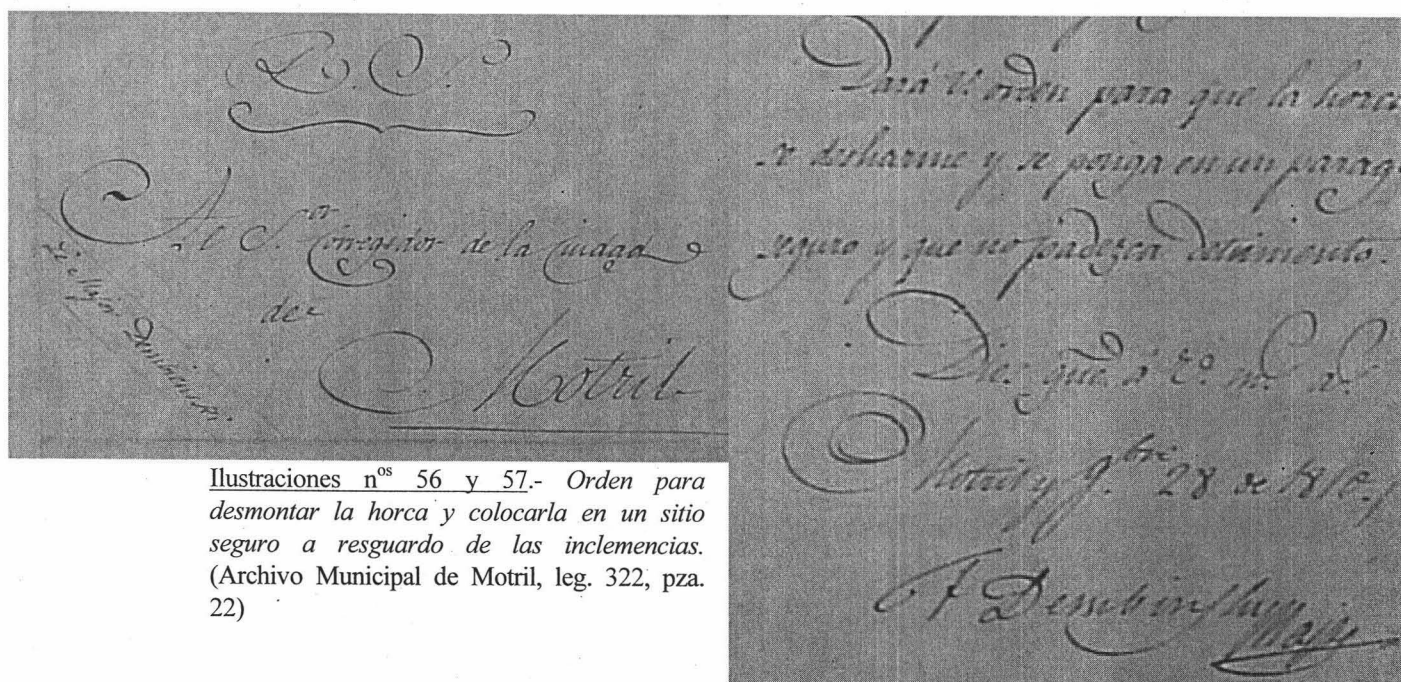 Al S.or Corregidor de la Ciudad
de
Motril
Dará V. orden para que la horca
se desharme y se ponga en un parage
seguro y que no padezca detrimento.
Dios gue. á V. m.s a.s
Motril y 9.bre 28 de 1810.
Dembinsky
Ilustraciones nos 56 y 57.- Orden para
desmontar la horca y colocarla en un sitio
seguro a resguardo de las inclemencias.
(Archivo Municipal de Motril, leg. 322, pza.
22)